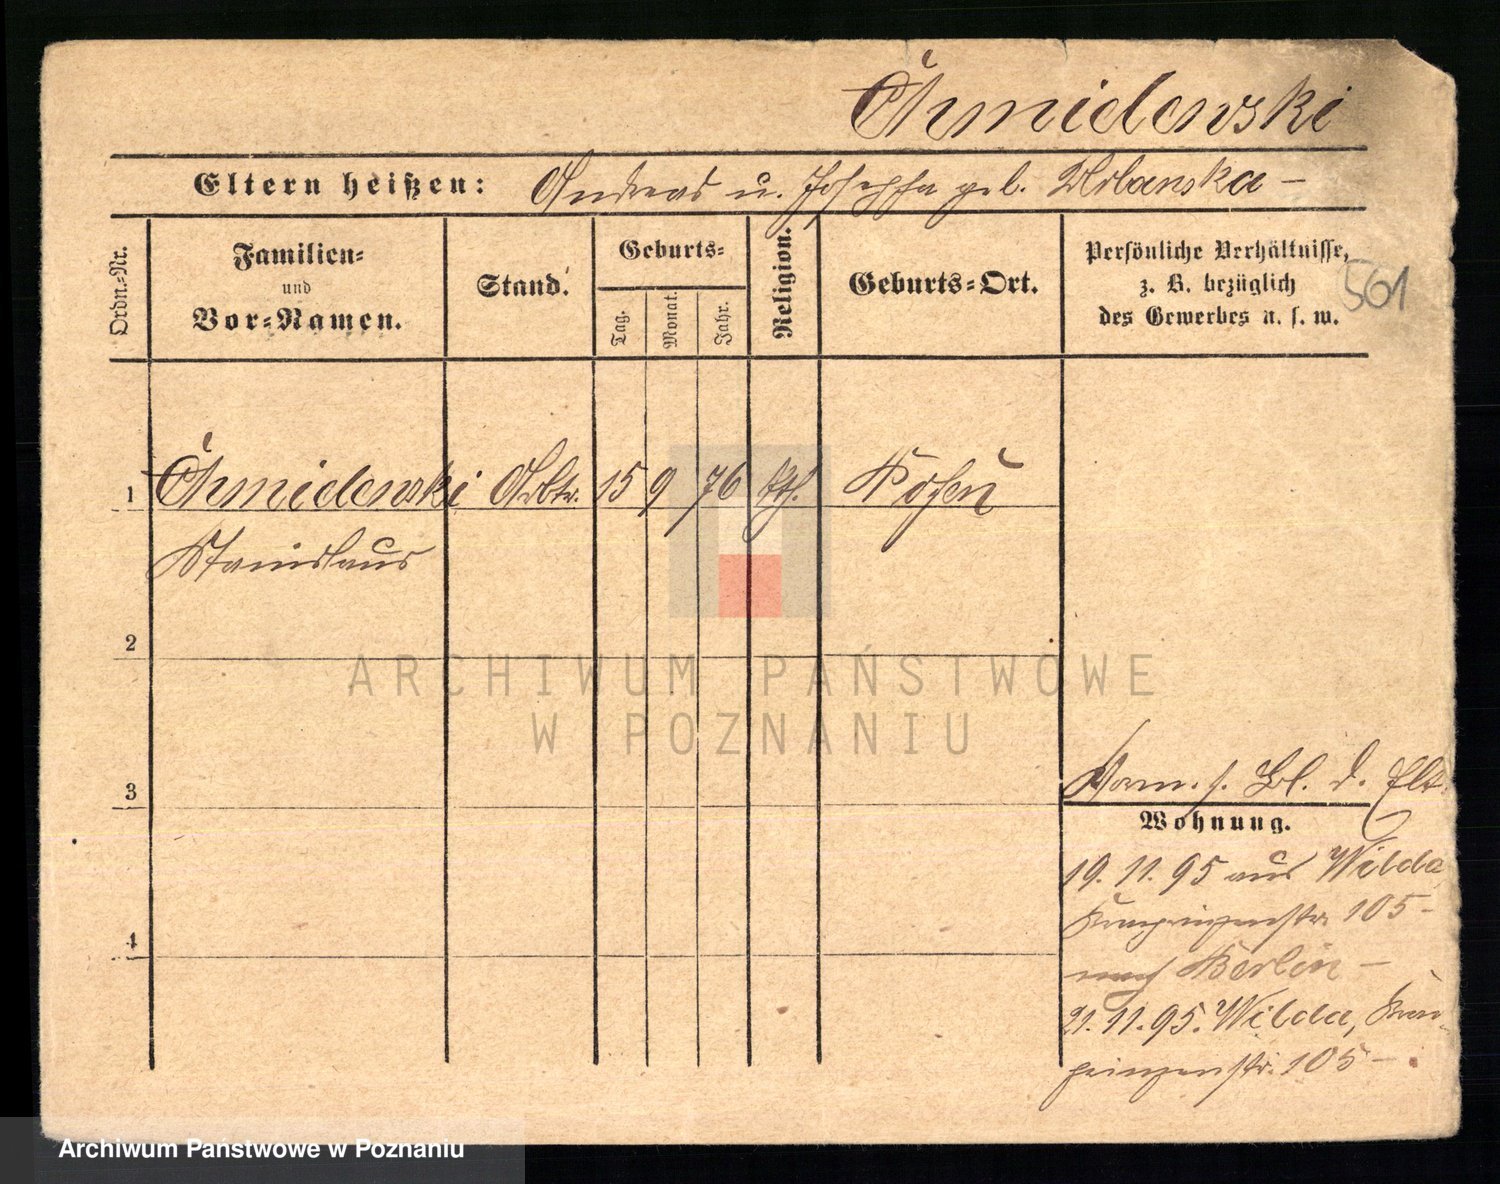 Chmielewski
Eltern heißen: Andreas u. Josepha geb. Urbanska -
Ordn.-Nr.
Familien-
und
Vor-Namen.
Stand.
Geburts-
Tag.
Monat.
Jahr.
Religion.
Geburts-Ort.
Persönliche Verhältnisse,
z. B. bezüglich
des Gewerbes u. s. w.
561
1 Chmielewski Arbtr. 15 9 76 kth. Posen
Stanislaus
2
3
4
s. Bl. d. Elt.
Wohnung.
19. 11. 95 aus Wilda,
Kronprinzenstr. 105 -
nach Berlin -
21. 11. 95. Wilda, Kron-
prinzenstr. 105 -
ARCHIWUM PAŃSTWOWE
W POZNANIU
Archiwum Państwowe w Poznaniu